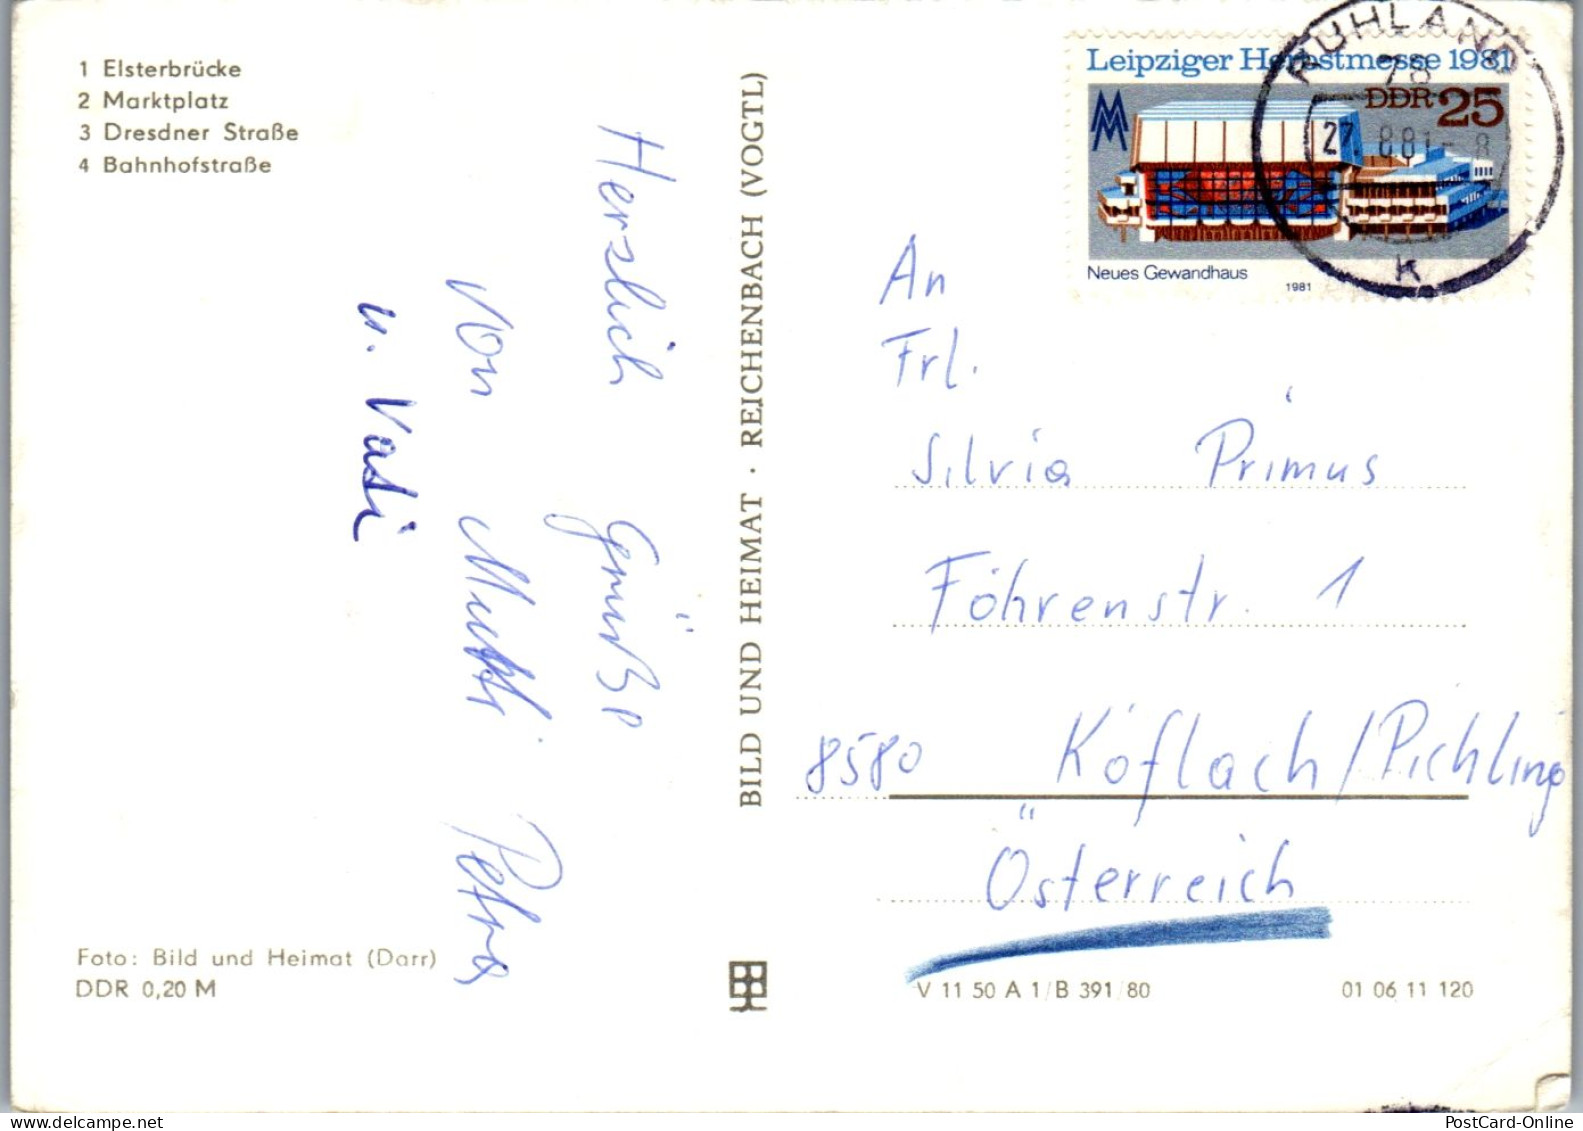 1 Elsterbrücke
2 Marktplatz
3 Dresdner Straße
4 Bahnhofstraße
Herzlich Grüße
von Mutti Petra
u. Vati
Foto: Bild und Heimat (Darr)
DDR 0,20 M
BILD UND HEIMAT · REICHENBACH (VOGTL)
Leipziger Herbstmesse 1981
DDR 25
MM
Neues Gewandhaus
1981
RUHLAND
78
27.8.81-8
K
An
Frl.
Silvia Primus
Föhrenstr. 1
8580 Köflach/Pichling
Österreich
V 11 50 A 1/B 391/80
01 06 11 120
PostCard-Online